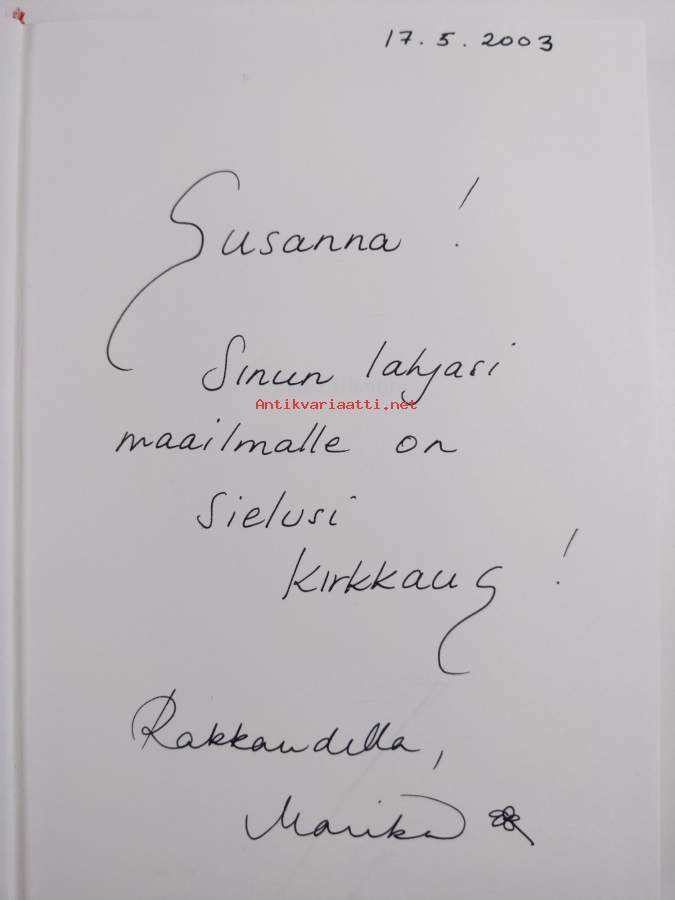 17.5.2003
Susanna!
Sinun lahjasi
Antikvariaatti.net
maailmalle on
Sielusi
kirkkaus!
Rakkaudella,
Marika